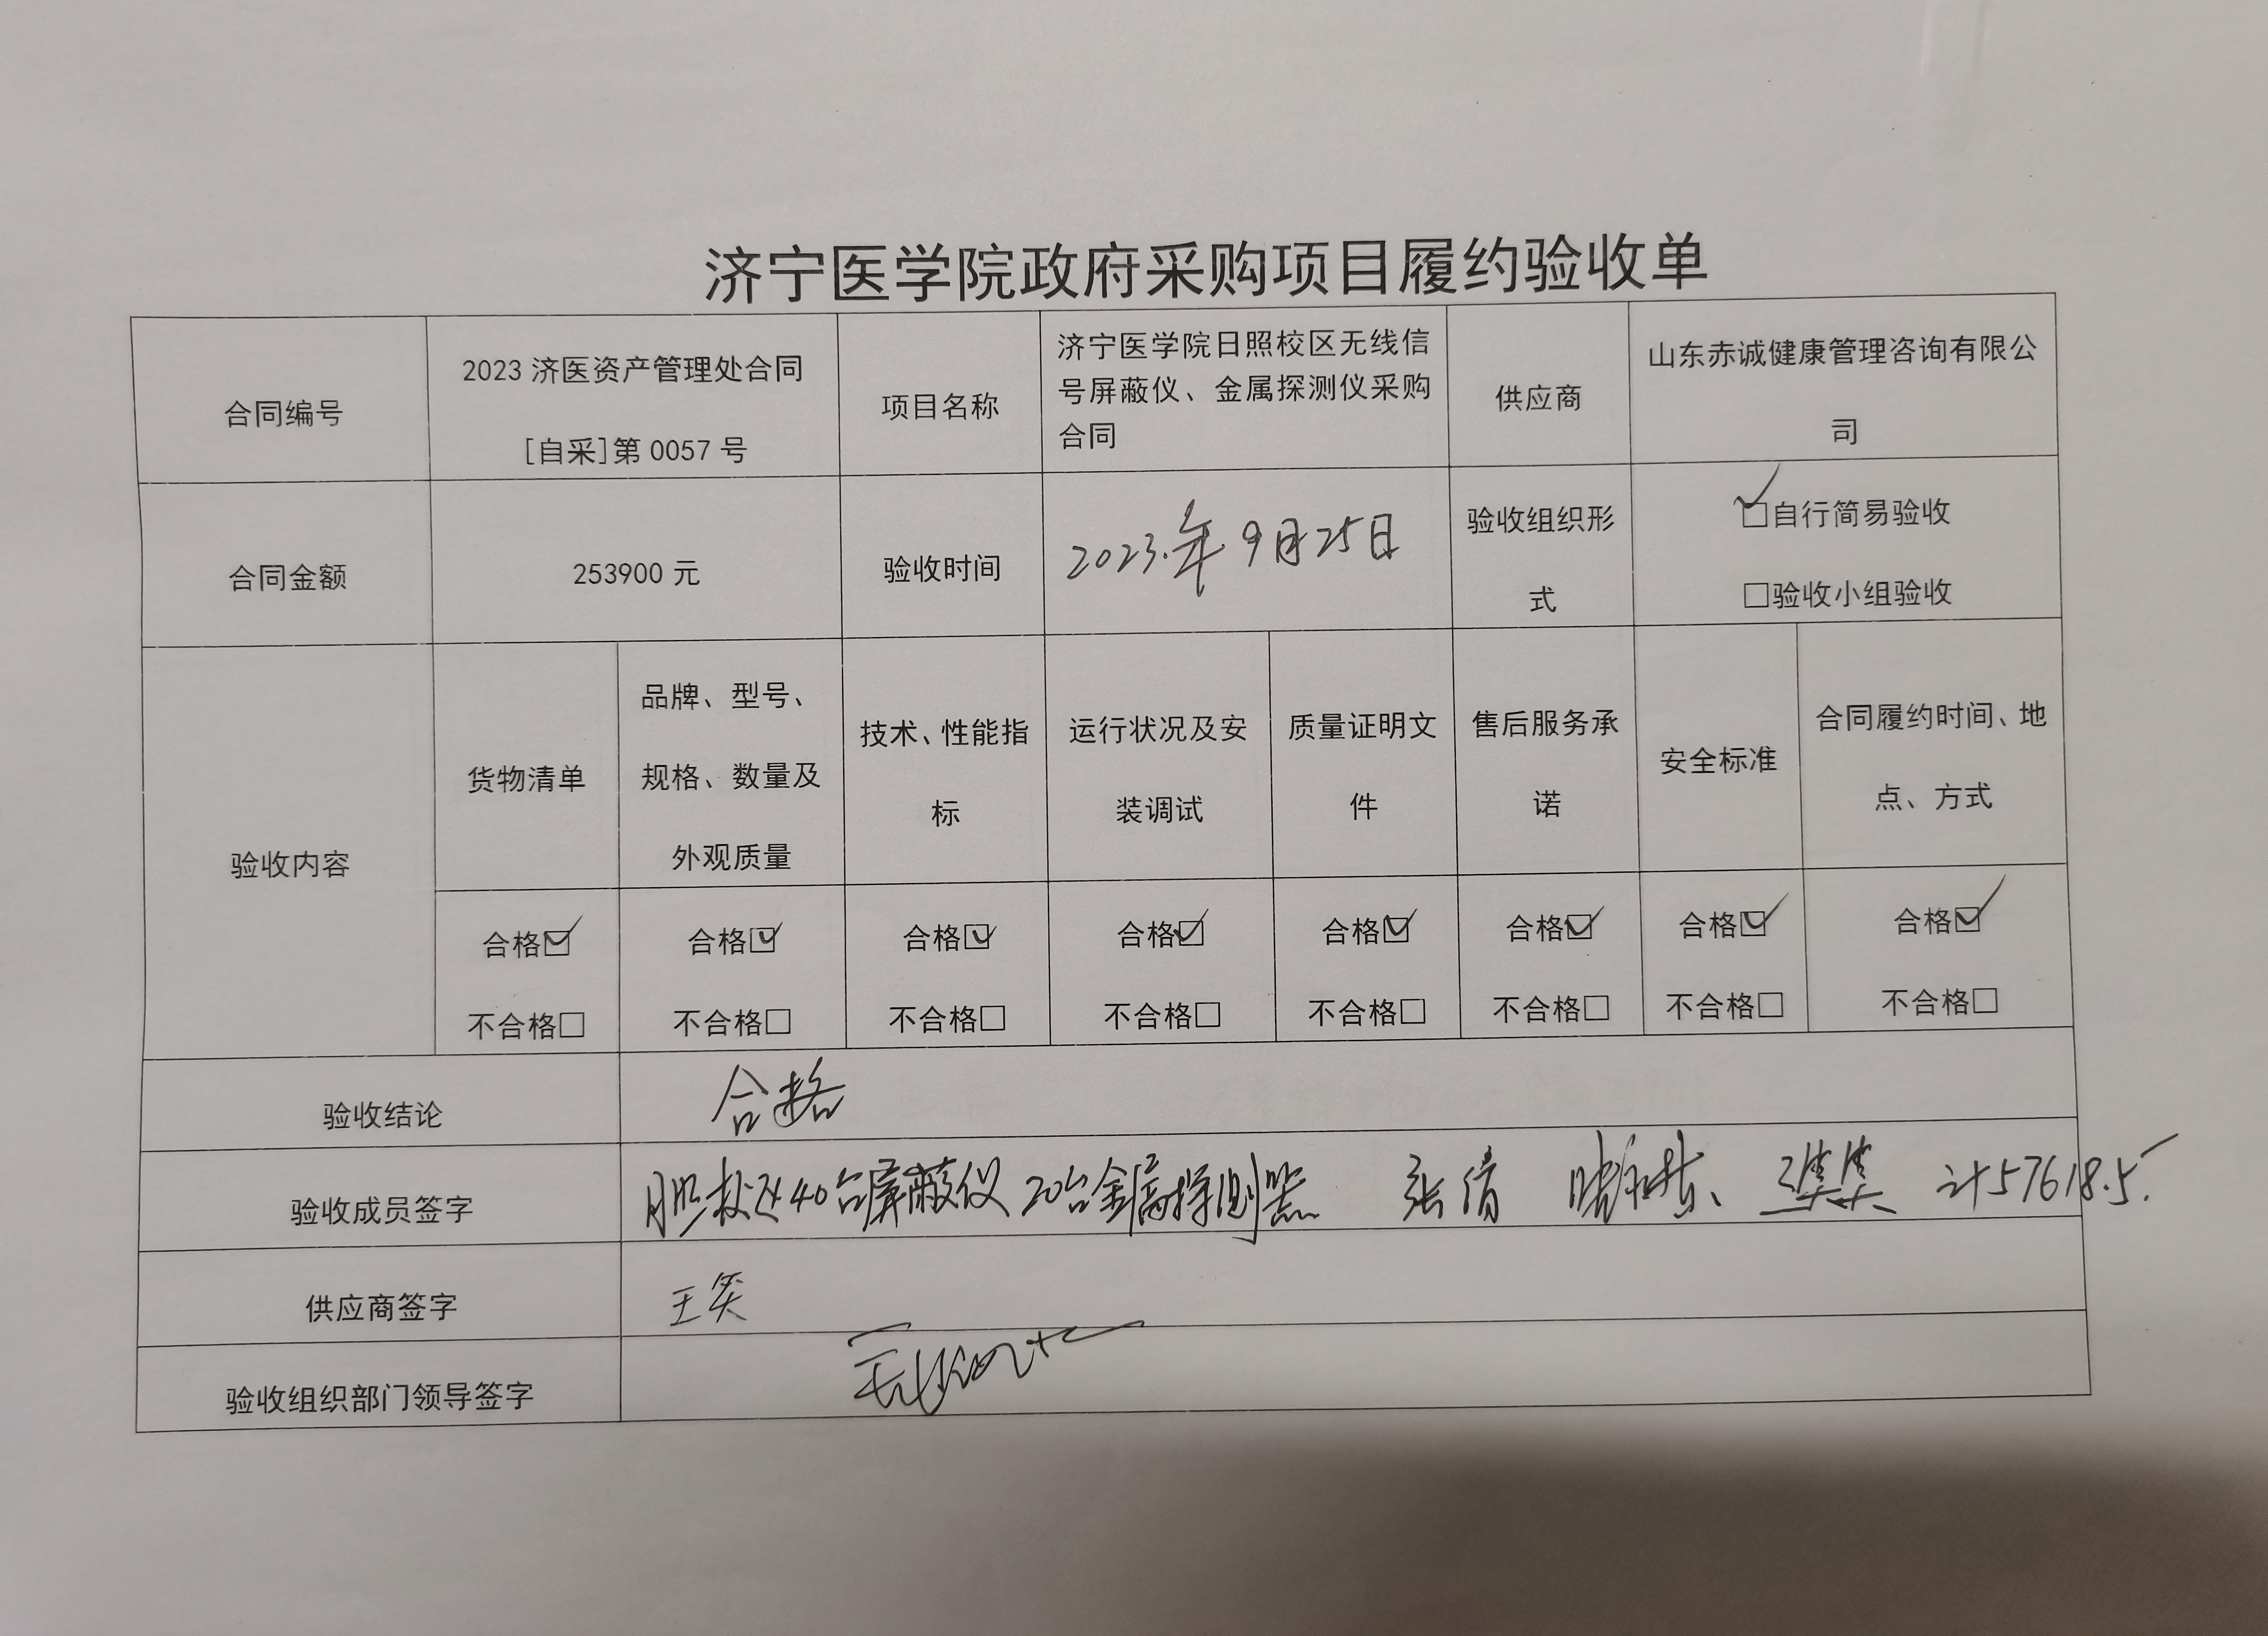 济宁医学院政府采购项目履约验收单
合同编号
2023 济医资产管理处合同
[自采]第 0057 号
项目名称
济宁医学院日照校区无线信
号屏蔽仪、金属探测仪采购
合同
供应商
山东赤诚健康管理咨询有限公
司
合同金额
253900 元
验收时间
2023.年9月25日
验收组织形
式
□自行简易验收
□验收小组验收
验收内容
货物清单
品牌、型号、
规格、数量及
外观质量
技术、性能指
标
运行状况及安
装调试
质量证明文
件
售后服务承
诺
安全标准
合同履约时间、地
点、方式
合格☑
合格☑
合格☑
合格☑
合格☑
合格☑
合格☑
合格☑
不合格□
不合格□
不合格□
不合格□
不合格□
不合格□
不合格□
不合格□
验收结论
合格
验收成员签字
日照校区40台屏蔽仪 20台金属探测器 张倩 计57618.5
供应商签字
王
验收组织部门领导签字